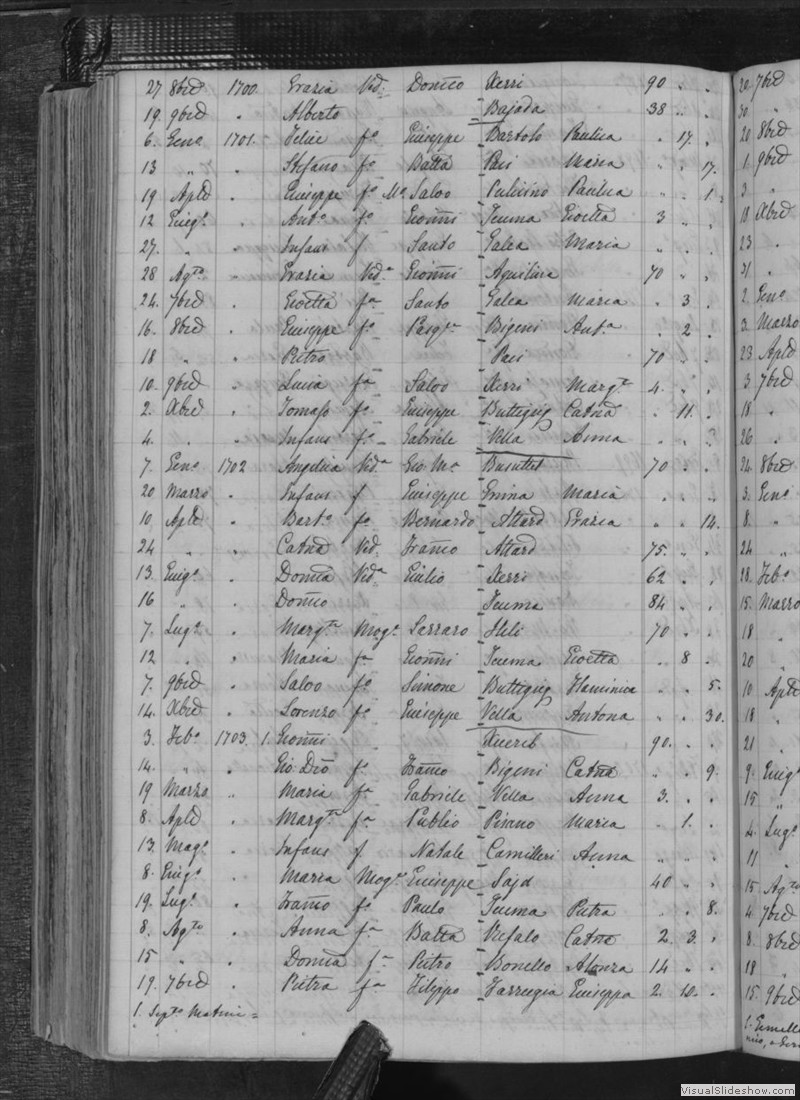 27 8bre 1700 Grazia Vid. Domco Xerri 90 " "
19 9bre " Alberto Bajada 38 " "
6. Geno 1701. Felice fo Giuseppe Bartolo Paulica " 17. "
13 " " Stefano fo Batta Paci Maria " " 17.
19 Aple " Giuseppe fo Mo Salvo Paulica " " 1.
12 Giugo " Anto fo Gionni Teuma Gioetta 3 " "
27. " " Infans f Santo Galea Maria " " "
28 Agto " Grazia Vida Gionni Aquilina 70 " "
24. 7bre " Gioetta fa Santo Galea Maria " 3. "
16. 8bre " Giuseppe fo Pasqle Bigeni Anta " 2. "
18 " " Pietro Paci 70 " "
10. 9bre " Lucia fa Salvo Xerri Margta 4. " "
2. Xbre " Tomaso fo Giuseppe Buttigieg Catna " 11. "
4. " " Infans fo Gabriele Vella Anna " " 2
7. Geno 1702 Angelica Vida Gio Ma Busuttil 70 " "
20 Marzo " Infans f Giuseppe Maria " " "
10 Aple " Barto fo Bernardo Attard Grazia " " 14.
24 " " Catna Vid. Franco Attard 75. " "
13. Giugo " Domca Vida Giulio Xerri 62 " "
16 " " Domco Teuma 84 " "
7. Lugo " Margta Moge 70 " "
12 " " Maria fa Gionni Teuma Gioetta " 8 "
7. 9bre " Salvo fo Simone Buttigieg Flaminica " " 5.
14. Xbre " Lorenzo fo Giuseppe Vella Antona " " 30.
3. Febo 1703. 1. Gionni Xuereb 90. " "
14. " " Gio: fo Franco Bigeni Catna " " 9.
19 Marzo " Maria fa Gabriele Vella Anna 3. " "
8. Aple " Margta fa Publio Pisano Maria " 1. "
13. Mago " Infans f Natale Camilleri Anna " " "
8. Giugo " Maria Moge Giuseppe Sajd 40 " "
19. Lugo " Franco fo Paulo Teuma Pietra " " 8.
8. Agto " Anna fa Batta Catna 2. 3. "
15 " " Domca fa Pietro Bonello 14 " "
19. 7bre " Pietra fa Filippo Farrugia Giuseppa 2. 10. "
1. =
20 7bre
30. "
20 8bre
1. 9bre
3 "
18 Xbre
23 "
31 "
2. Geno
3. Marzo
23 Aple
3. 7bre
18 "
26 "
24. 8bre
3. Geno
8. "
24 "
28. Febo
15. Marzo
18 "
20 "
10 Aple
18 "
21 "
9. Giugo
15 "
4. Lugo
11 "
15 Agto
4. 7bre
8. 8bre
18 "
15. 9bre
VisualSlideshow.com